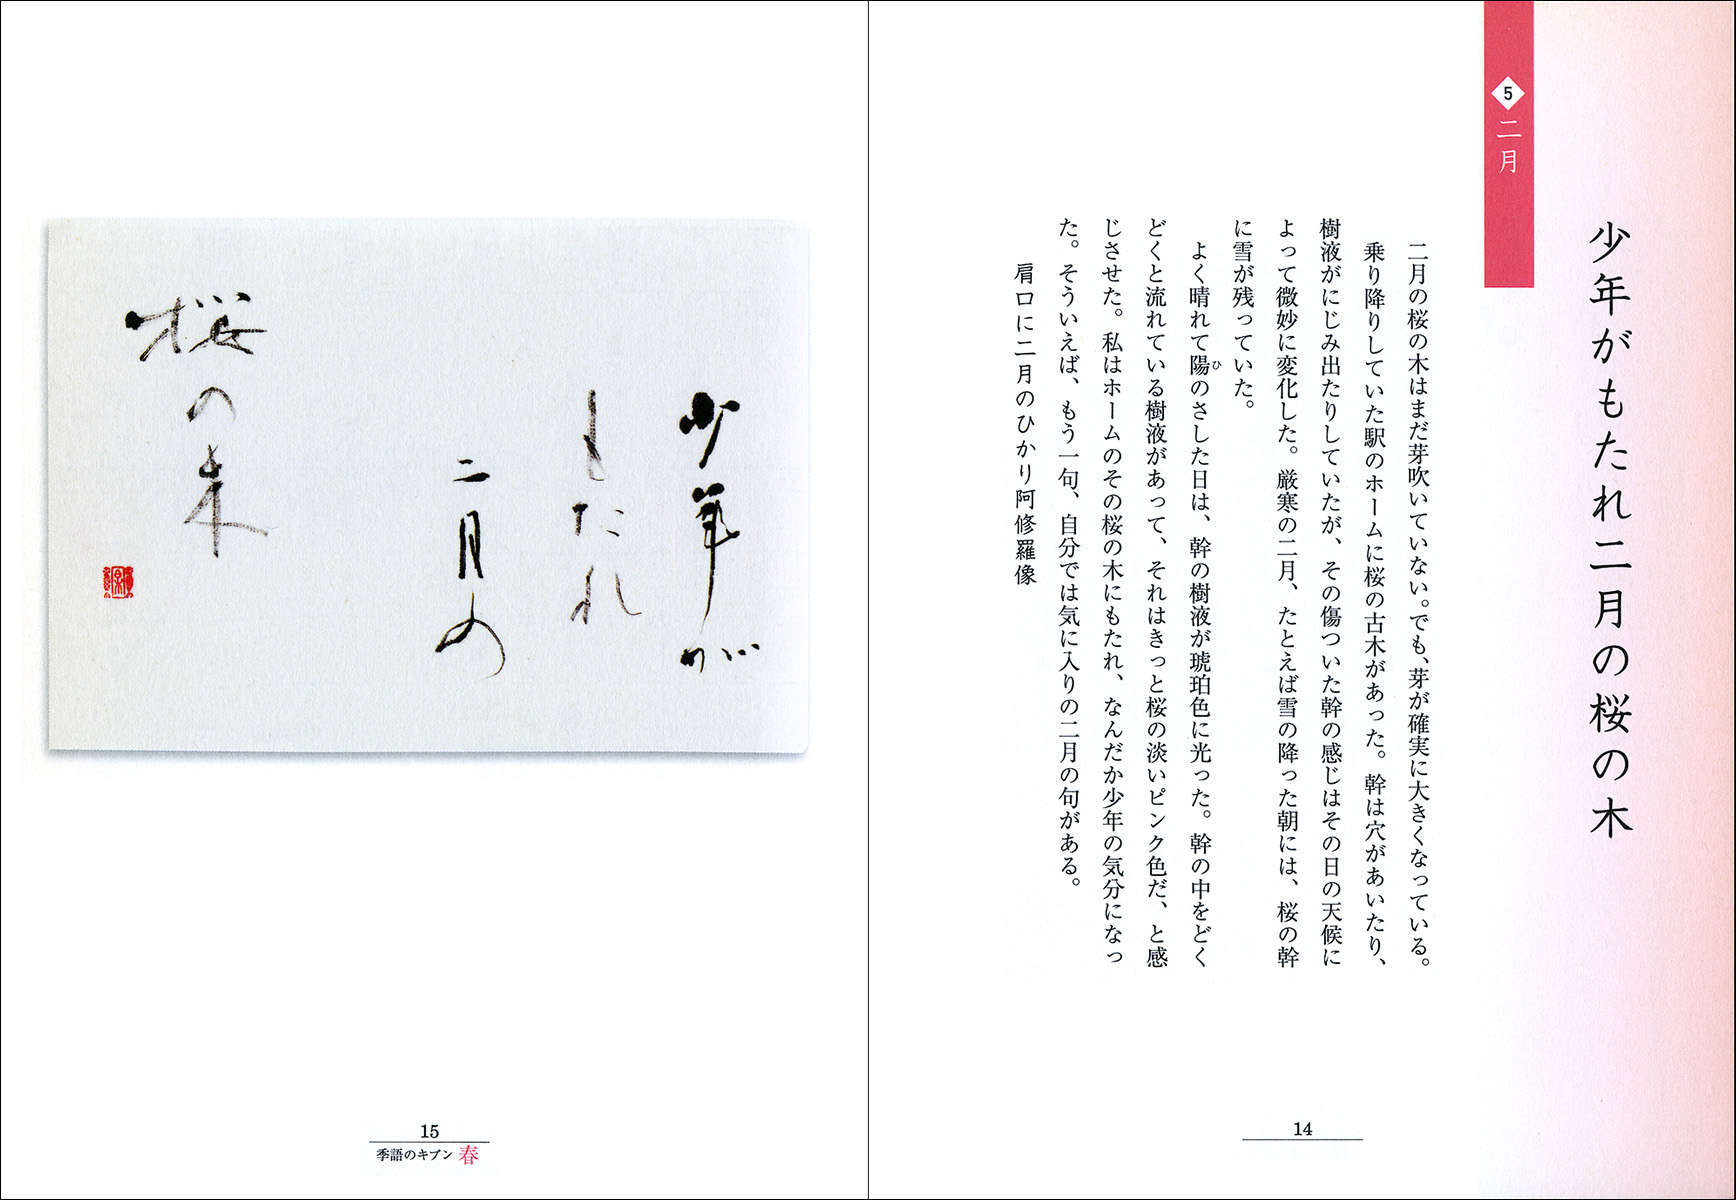 5
二月
少年がもたれ二月の桜の木
二月の桜の木はまだ芽吹いていない。でも、芽が確実に大きくなっている。
乗り降りしていた駅のホームに桜の古木があった。幹は穴があいたり、
樹液がにじみ出たりしていたが、その傷ついた幹の感じはその日の天候に
よって微妙に変化した。厳寒の二月、たとえば雪の降った朝には、桜の幹
に雪が残っていた。
よく晴れて陽のさした日は、幹の樹液が琥珀色に光った。幹の中をどく
ひ
どくと流れている樹液があって、それはきっと桜の淡いピンク色だ、と感
じさせた。私はホームのその桜の木にもたれ、なんだか少年の気分になっ
た。そういえば、もう一句、自分では気に入りの二月の句がある。
肩口に二月のひかり阿修羅像
14
少年が
もたれ
二月の
桜の木
15
季語のキブン 春